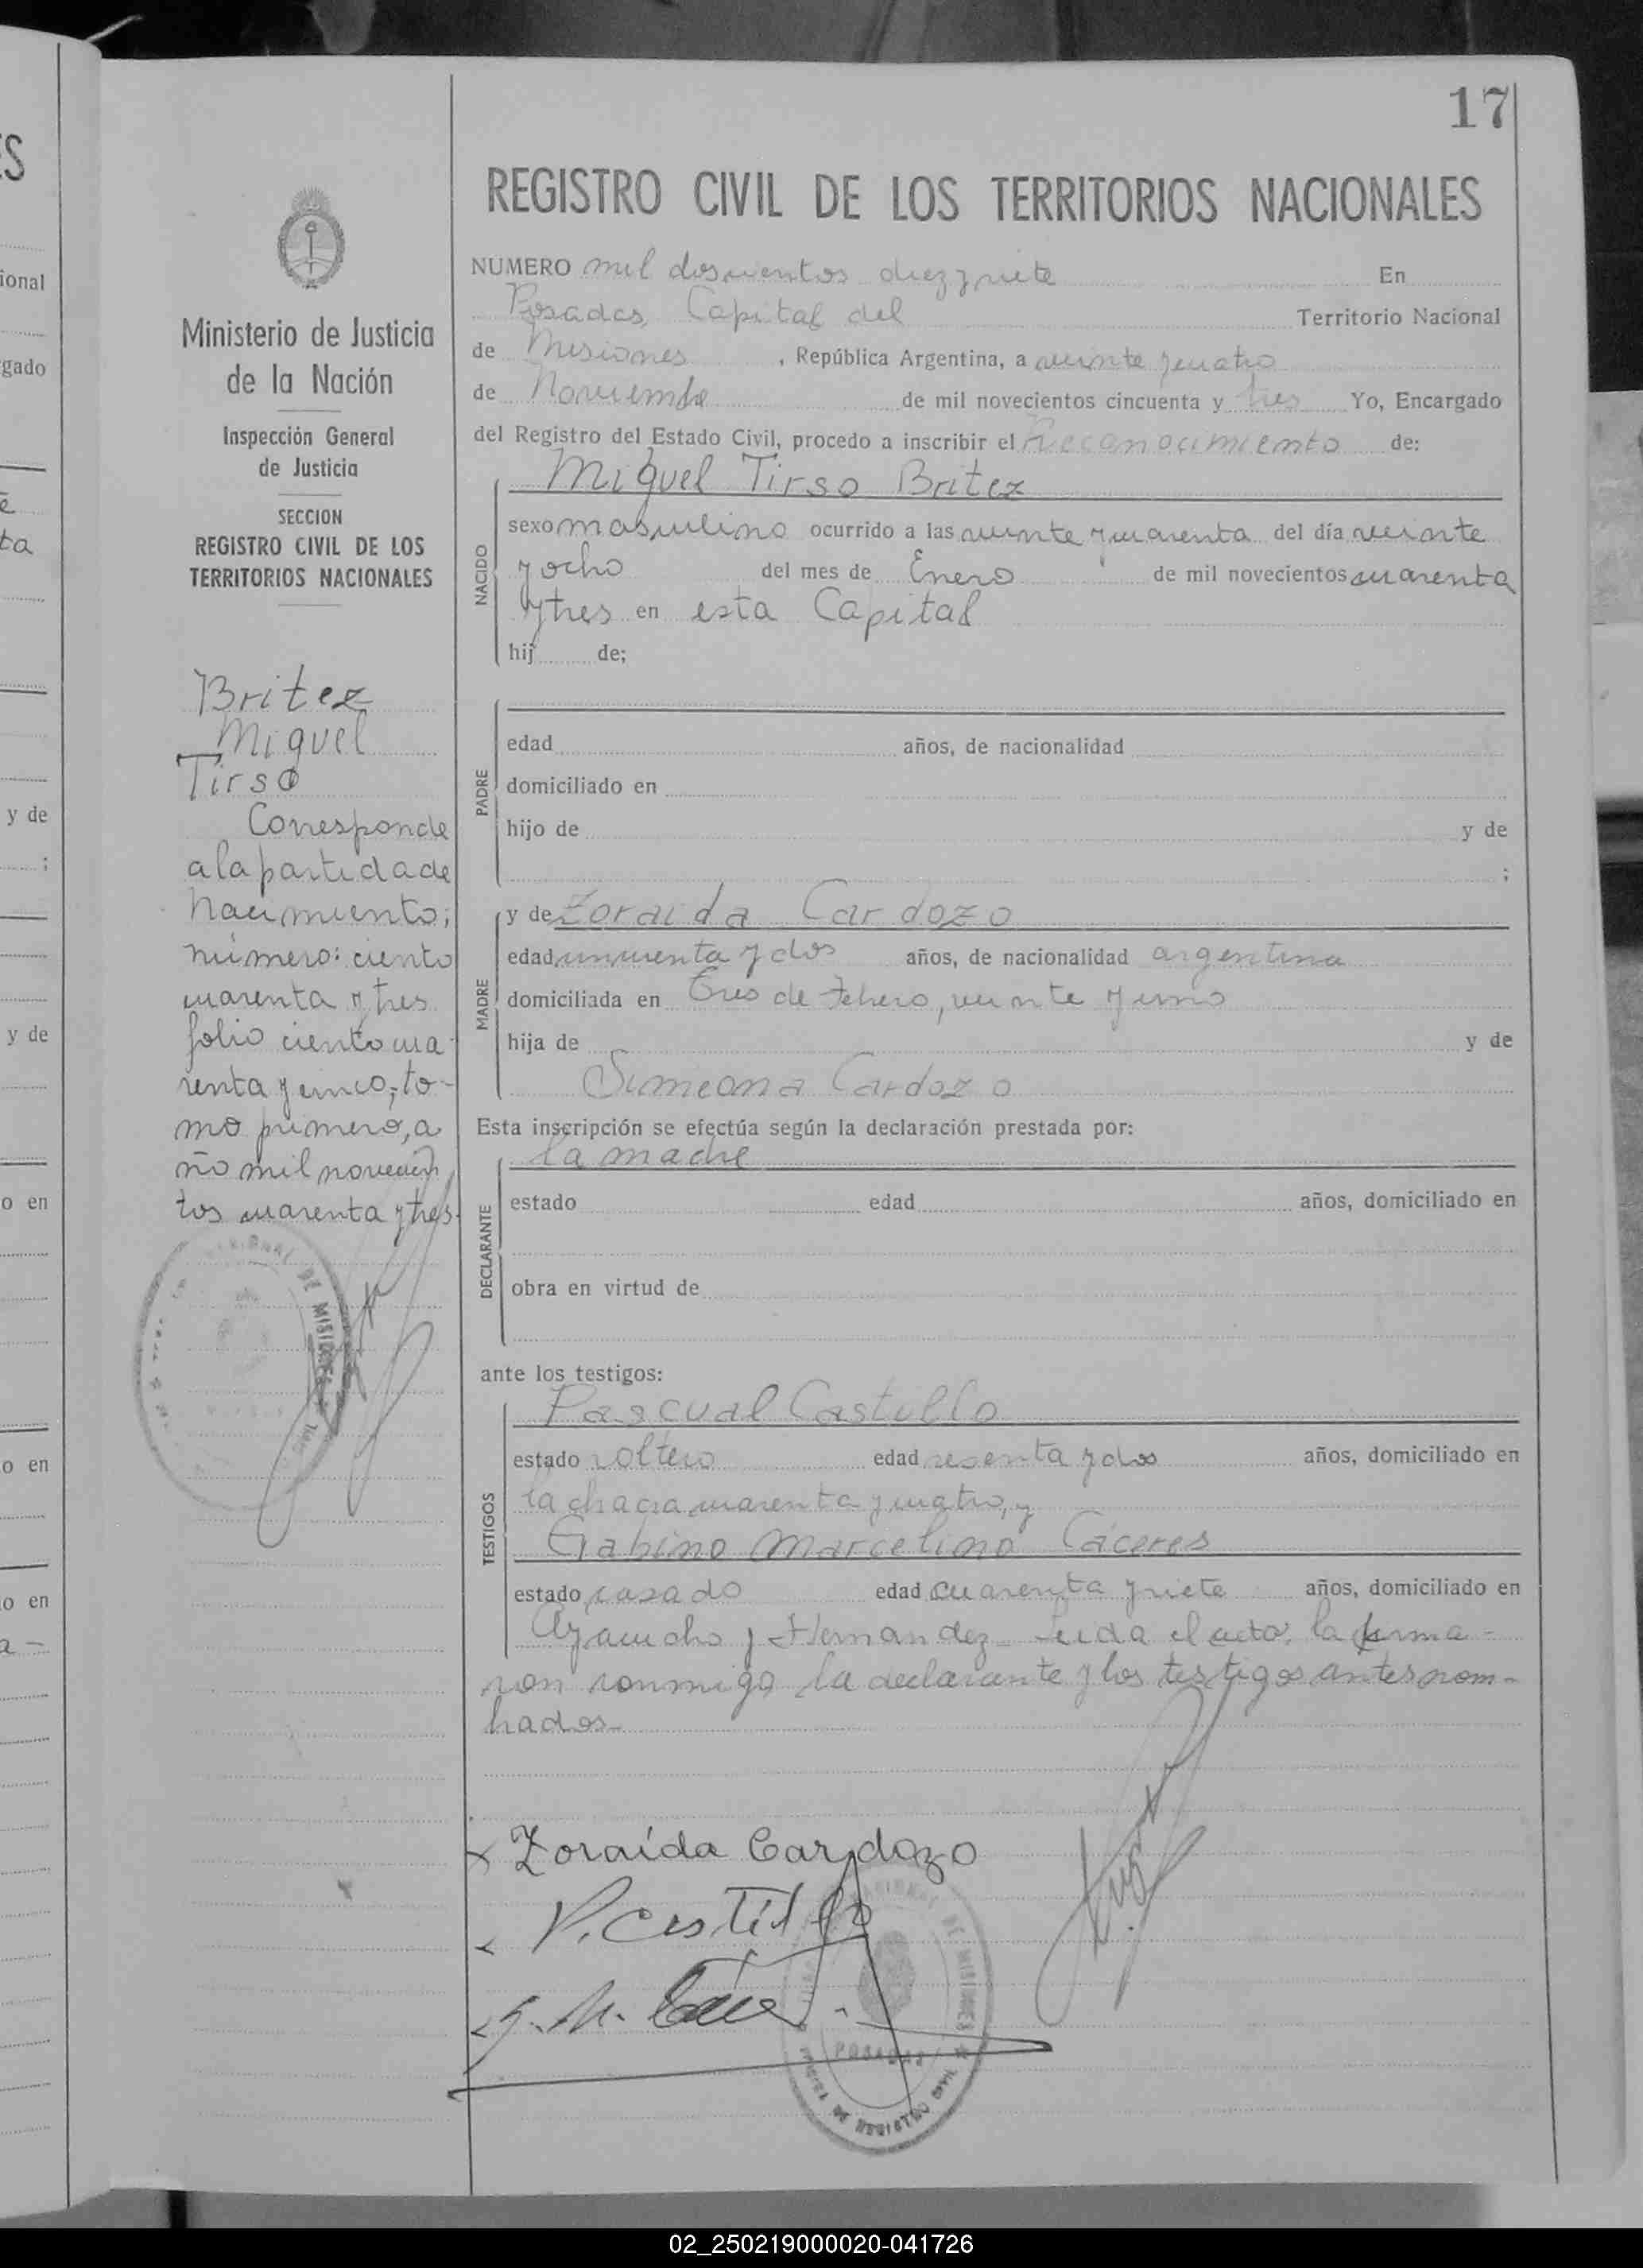 17
REGISTRO CIVIL DE LOS TERRITORIOS NACIONALES
NUMERO mil doscientos diez y siete En
Posadas, Capital del Territorio Nacional
de Misiones , República Argentina, a veinte y cuatro
de Noviembre de mil novecientos cincuenta y tres Yo, Encargado
del Registro del Estado Civil, procedo a inscribir el Reconocimiento de:
Miguel Tirso Britez
NACIDO
sexo masculino ocurrido a las veinte y cuarenta del día veinte
y ocho del mes de Enero de mil novecientos cuarenta
y tres en esta Capital
hij de;
PADRE
edad años, de nacionalidad
domiciliado en
hijo de y de
;
MADRE
y de Zoraida Cardozo
edad cincuenta y dos años, de nacionalidad argentina
domiciliada en Tres de Febrero, veinte y uno
hija de y de
Simeona Cardozo
Esta inscripción se efectúa según la declaración prestada por:
la madre
DECLARANTE
estado edad años, domiciliado en
obra en virtud de
ante los testigos:
TESTIGOS
Pascual Castillo
estado soltero edad sesenta y dos años, domiciliado en
la chacra cuarenta y cuatro, y
Gabino Marcelino Cáceres
estado casado edad cuarenta y siete años, domiciliado en
Ayacucho y Hernandez - Leida el acta, la firma-
ron conmigo la declarante y los testigos antes nom-
bados-
Zoraída Cardozo
P. Castillo
G. M. Các
POSADAS
DE MISIONES
DE REGISTRO CIVIL
Ministerio de Justicia
de la Nación
Inspección General
de Justicia
SECCION
REGISTRO CIVIL DE LOS
TERRITORIOS NACIONALES
Britez
Miguel
Tirso
Corresponde
a la partida de
nacimiento;
número: ciento
cuarenta y tres
folio ciento cua-
renta y cinco, to-
mo primero, a
ño mil novecien
tos cuarenta y tres.
DE MISIONES
ES
ional
gado
ta
y de
;
y de
o en
o en
o en
a -
02_250219000020-041726